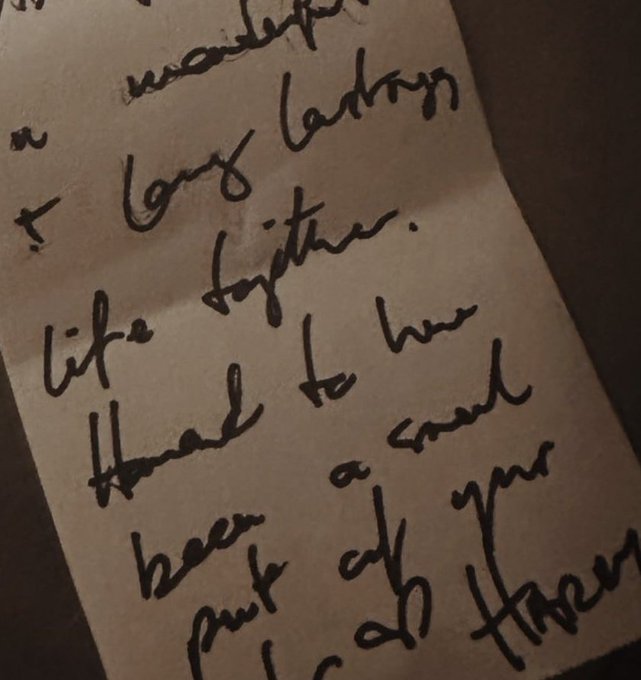 a wonderful
+ long lasting
life together.
Honored to have
been a small
part of your
HARRY